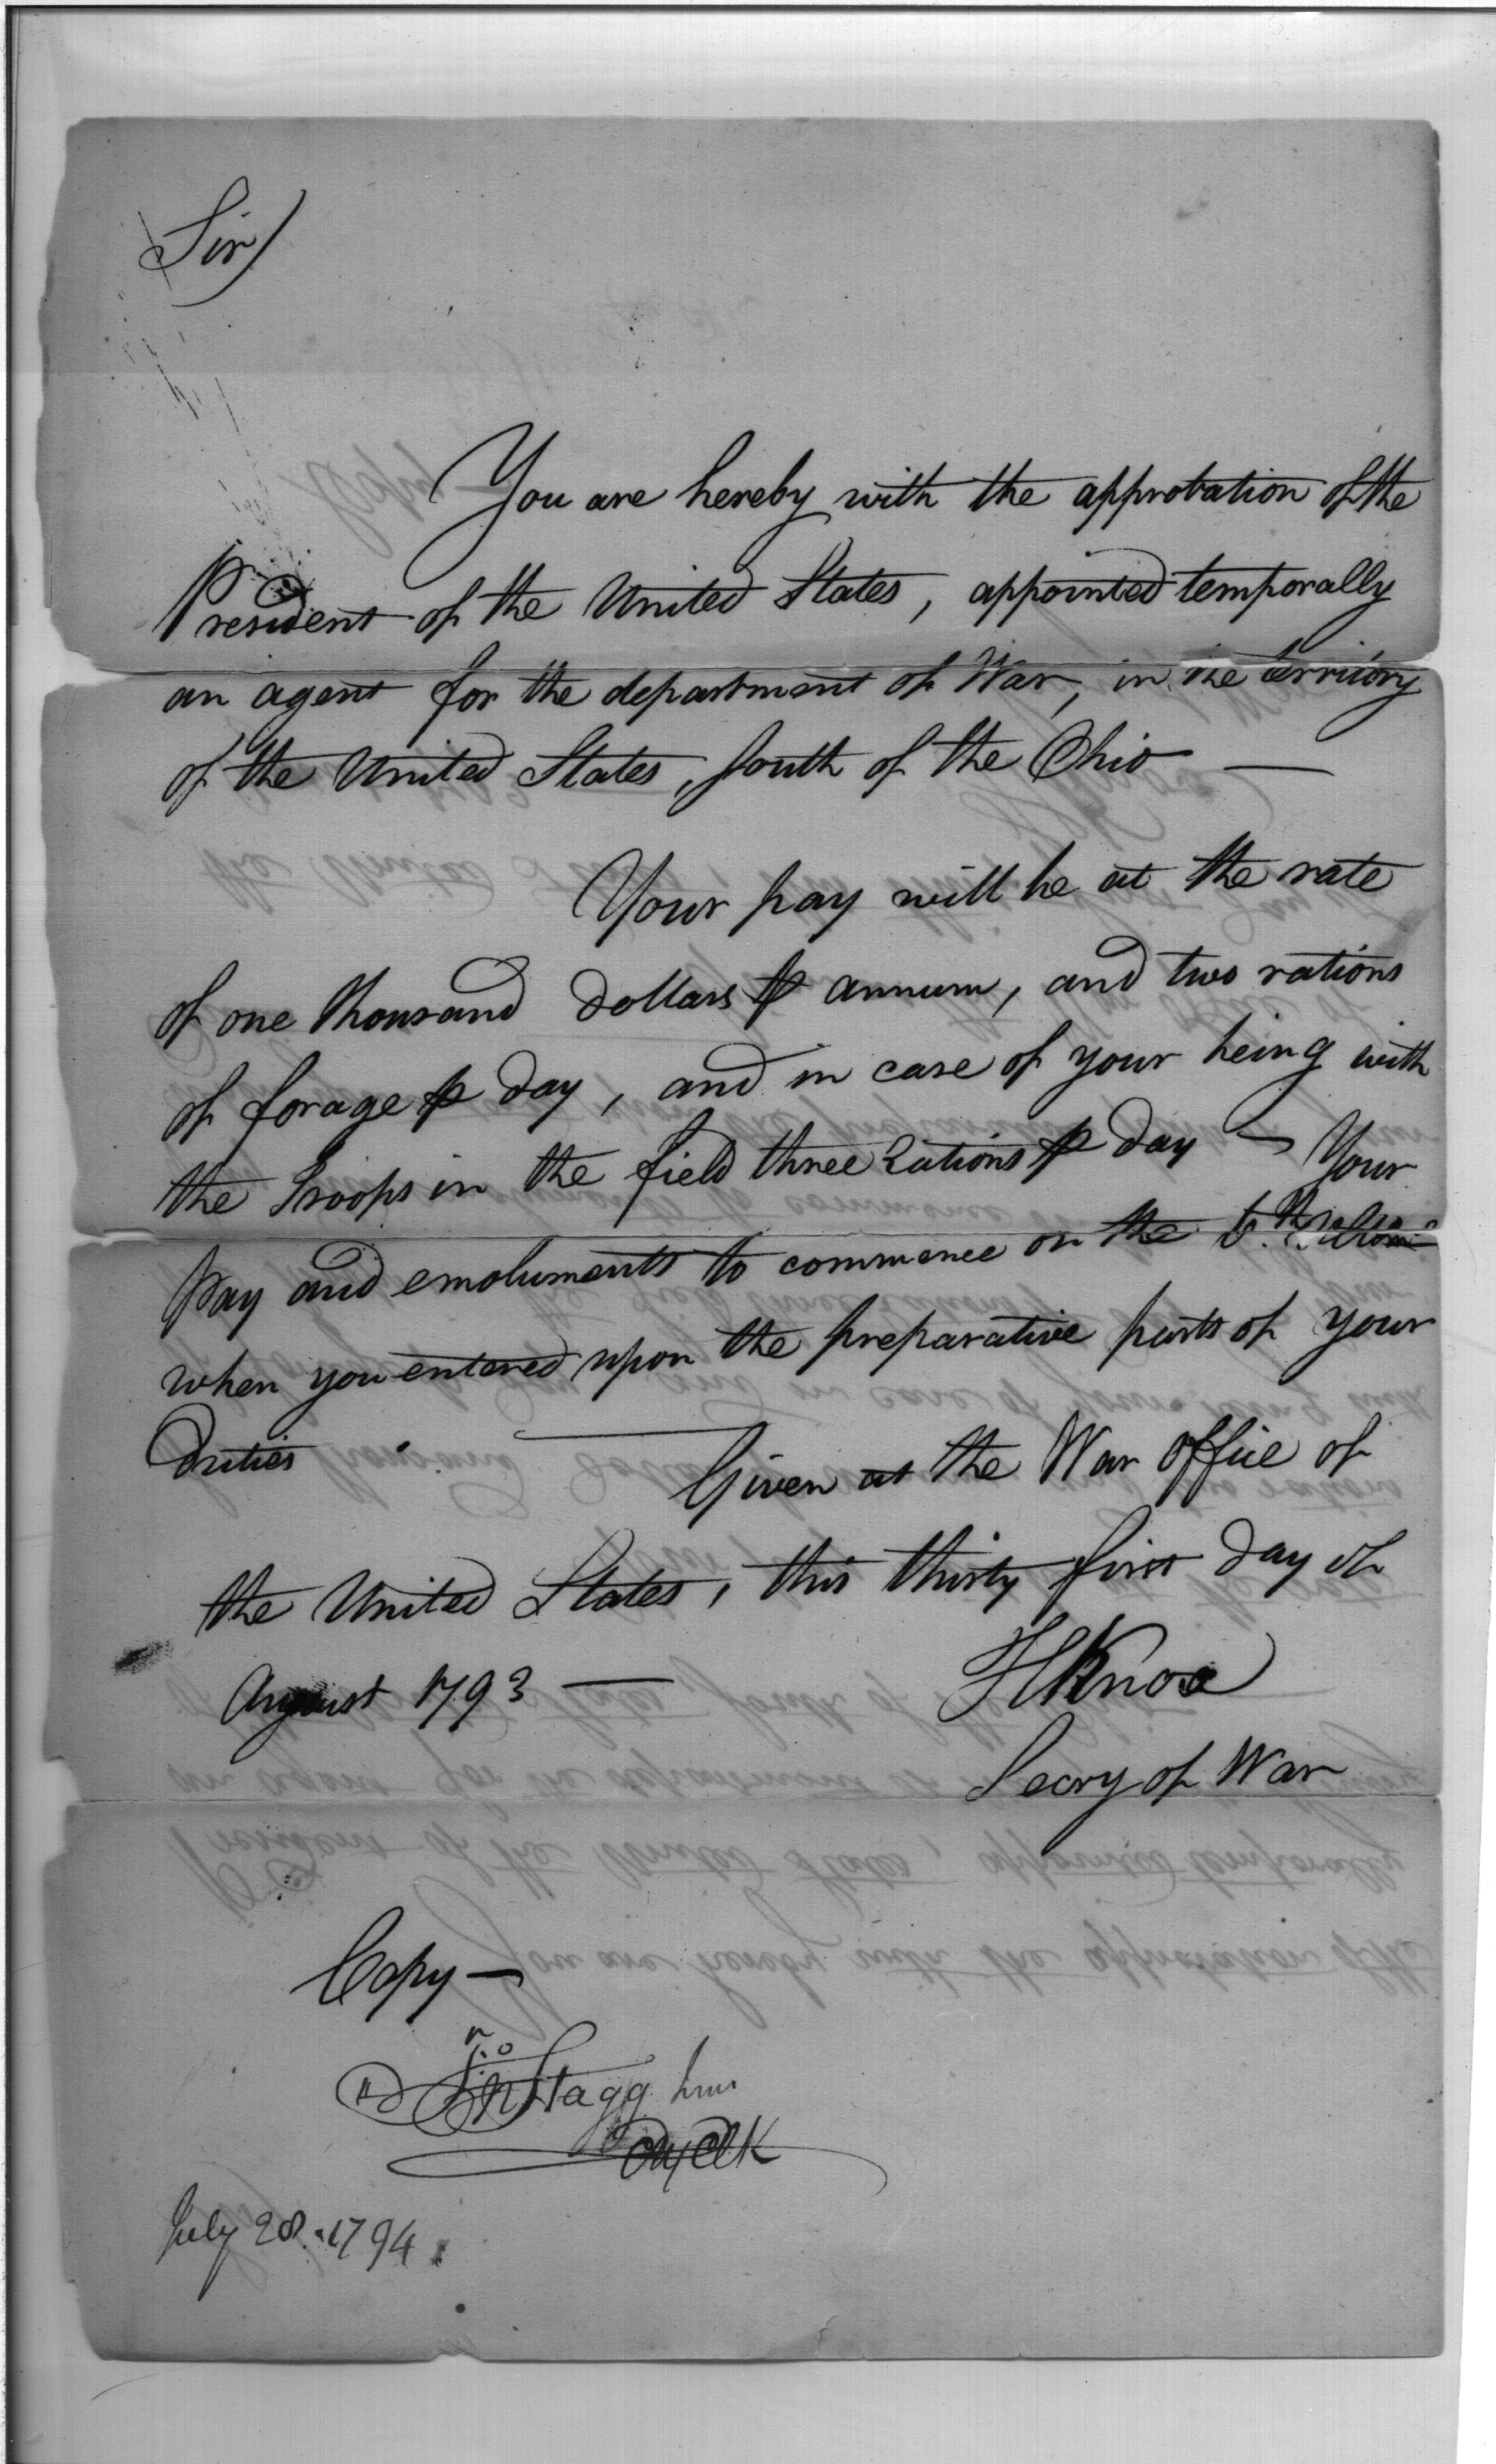 Sir)
You are hereby with the approbation of the
President of the United States, appointed temporally
an agent for the department of War, in the territory
of the United States, South of the Ohio —
Your pay will be at the rate
of one thousand dollars ⅌ annum, and two rations
of forage ⅌ day, and in case of your being with
the troops in the field three Rations ⅌ day – Your
pay and emoluments to commence on the
when you entered upon the preparative parts of your
duties —
Given at the War office of
the United States, this thirty first day of
August 1793 —
HKnox
Secry of War
Copy —
Jno Stagg
Clk
July 28. 1794.